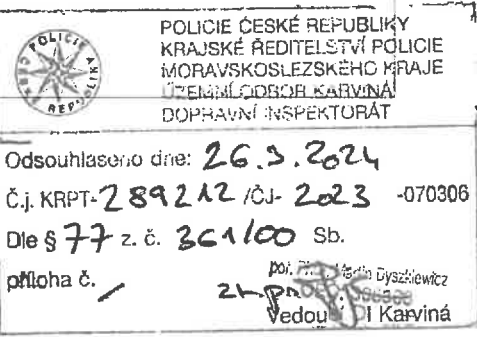 POLICIE ČESKÉ REPUBLIKY
KRAJSKÉ ŘEDITELSTVÍ POLICIE
MORAVSKOSLEZSKÉHO KRAJE
ÚZEMNÍ ODBOR KARVINÁ
DOPRAVNÍ INSPEKTORÁT
Odsouhlaseno dne: 26.3.2024
Č.j. KRPT-289212/ČJ-2023-070306
Dle § 77 z. č. 361/00 Sb.
příloha č. /
por. Martin Dyszkiewicz
Vedoucí DI Karviná